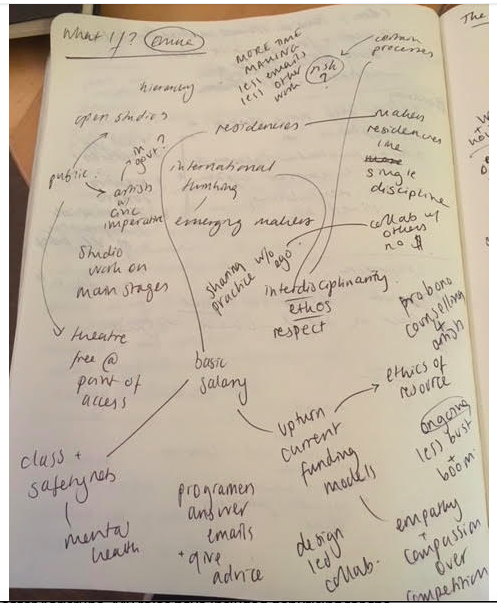 What if?
MORE TIME
MAKING
less emails
less other
work
risk
?
certain
processes
hierarchy
open studios
residencies
makes
residencies
like
more
single
discipline
in
govt?
public
artists
w/
civic
imperative
international
thinking
emerging makers
collab w/
others
no $
sharing w/o
practice ego
Studio
work on
main stages
interdisciplinarity
ethos
respect
pro bono
counselling
+
artists
theatre
free @
point of
access
basic
salary
ethics of
resource
upturn
current
funding
models
ongoing
less bust
+
boom
class +
safety nets
mental
health
programers
answer
emails
+ give
advice
design
led
collab.
empathy
+
compassion
over
competition
The